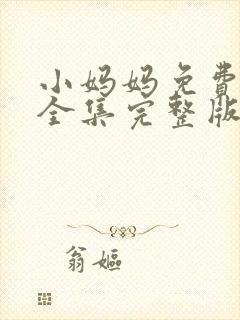 小妈妈免费
全集完整版
翁嫗